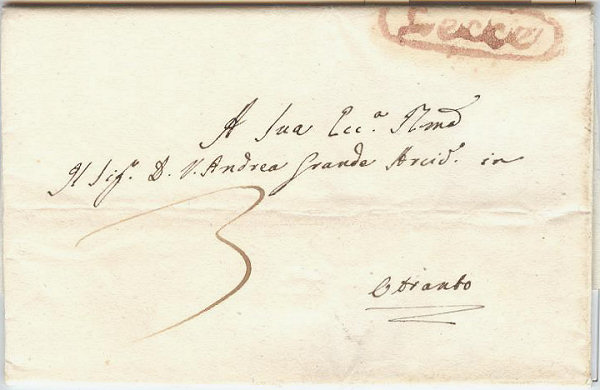 Lecce
A Sua Ecc.ª Rma
Il Sig.ʳ D. V. Andrea Grande Arcid.º in
3
Otranto